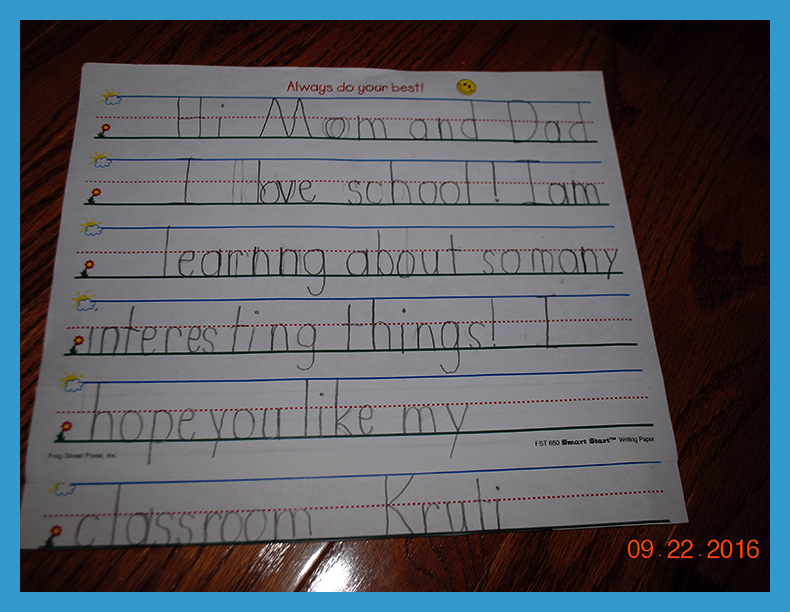 Always do your best!
Hi Mom and Dad
I love school! I am
learning about so many
interesting things! I
hope you like my
Frog Street Press, Inc.
FST 650 Smart Start™ Writing Paper
classroom Kruti
09.22.2016